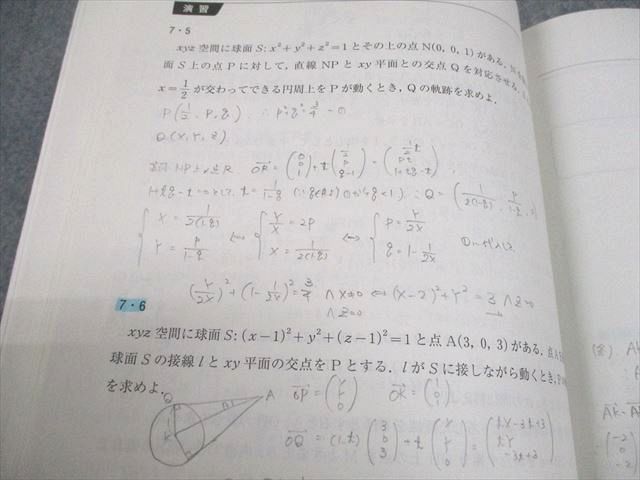 演習
7・5
xyz 空間に球面 S: x²+y²+z²=1 とその上の点 N(0, 0, 1) がある.
面 S 上の点 P に対して, 直線 NP と xy 平面との交点 Q を対応させる.
x=1/2 が交わってできる円周上を P が動くとき, Q の軌跡を求めよ.
P(1/2, P, q) ∴ p²+q²=3/4 -①
Q(x, Y, z)
OR = (0 0 1) + t (1/2 p q-1) = (1/2 t pt 1+tq-t)
1+tq-t=0 t=1/(1-q) ∴Q=(1/2(1-q), p/1-q,
{ X=1/2(1-q) ⇔ { Y/X=2p ⇔ { P=Y/2X
Y=P/1-q X=1/2(1-q) q=1-1/2X
(Y/2X)²+(1-1/2X)²=3/4 ∧X≠0 ⇔ (X-2)²+Y²=3 ∧Z=0
∧Z=0
7・6
xyz 空間に球面 S: (x-1)²+y²+(z-1)²=1 と点 A(3, 0, 3) がある. 点 A
球面 S の接線 l と xy 平面の交点を P とする. l が S に接しながら動くとき,
を求めよ.
OP=(X Y 0) OK=(1 0 1)
Q A K
OQ=(1-t)(3 0 3)+t(X Y 0)=(tX-3t+3 tY -3t+3)